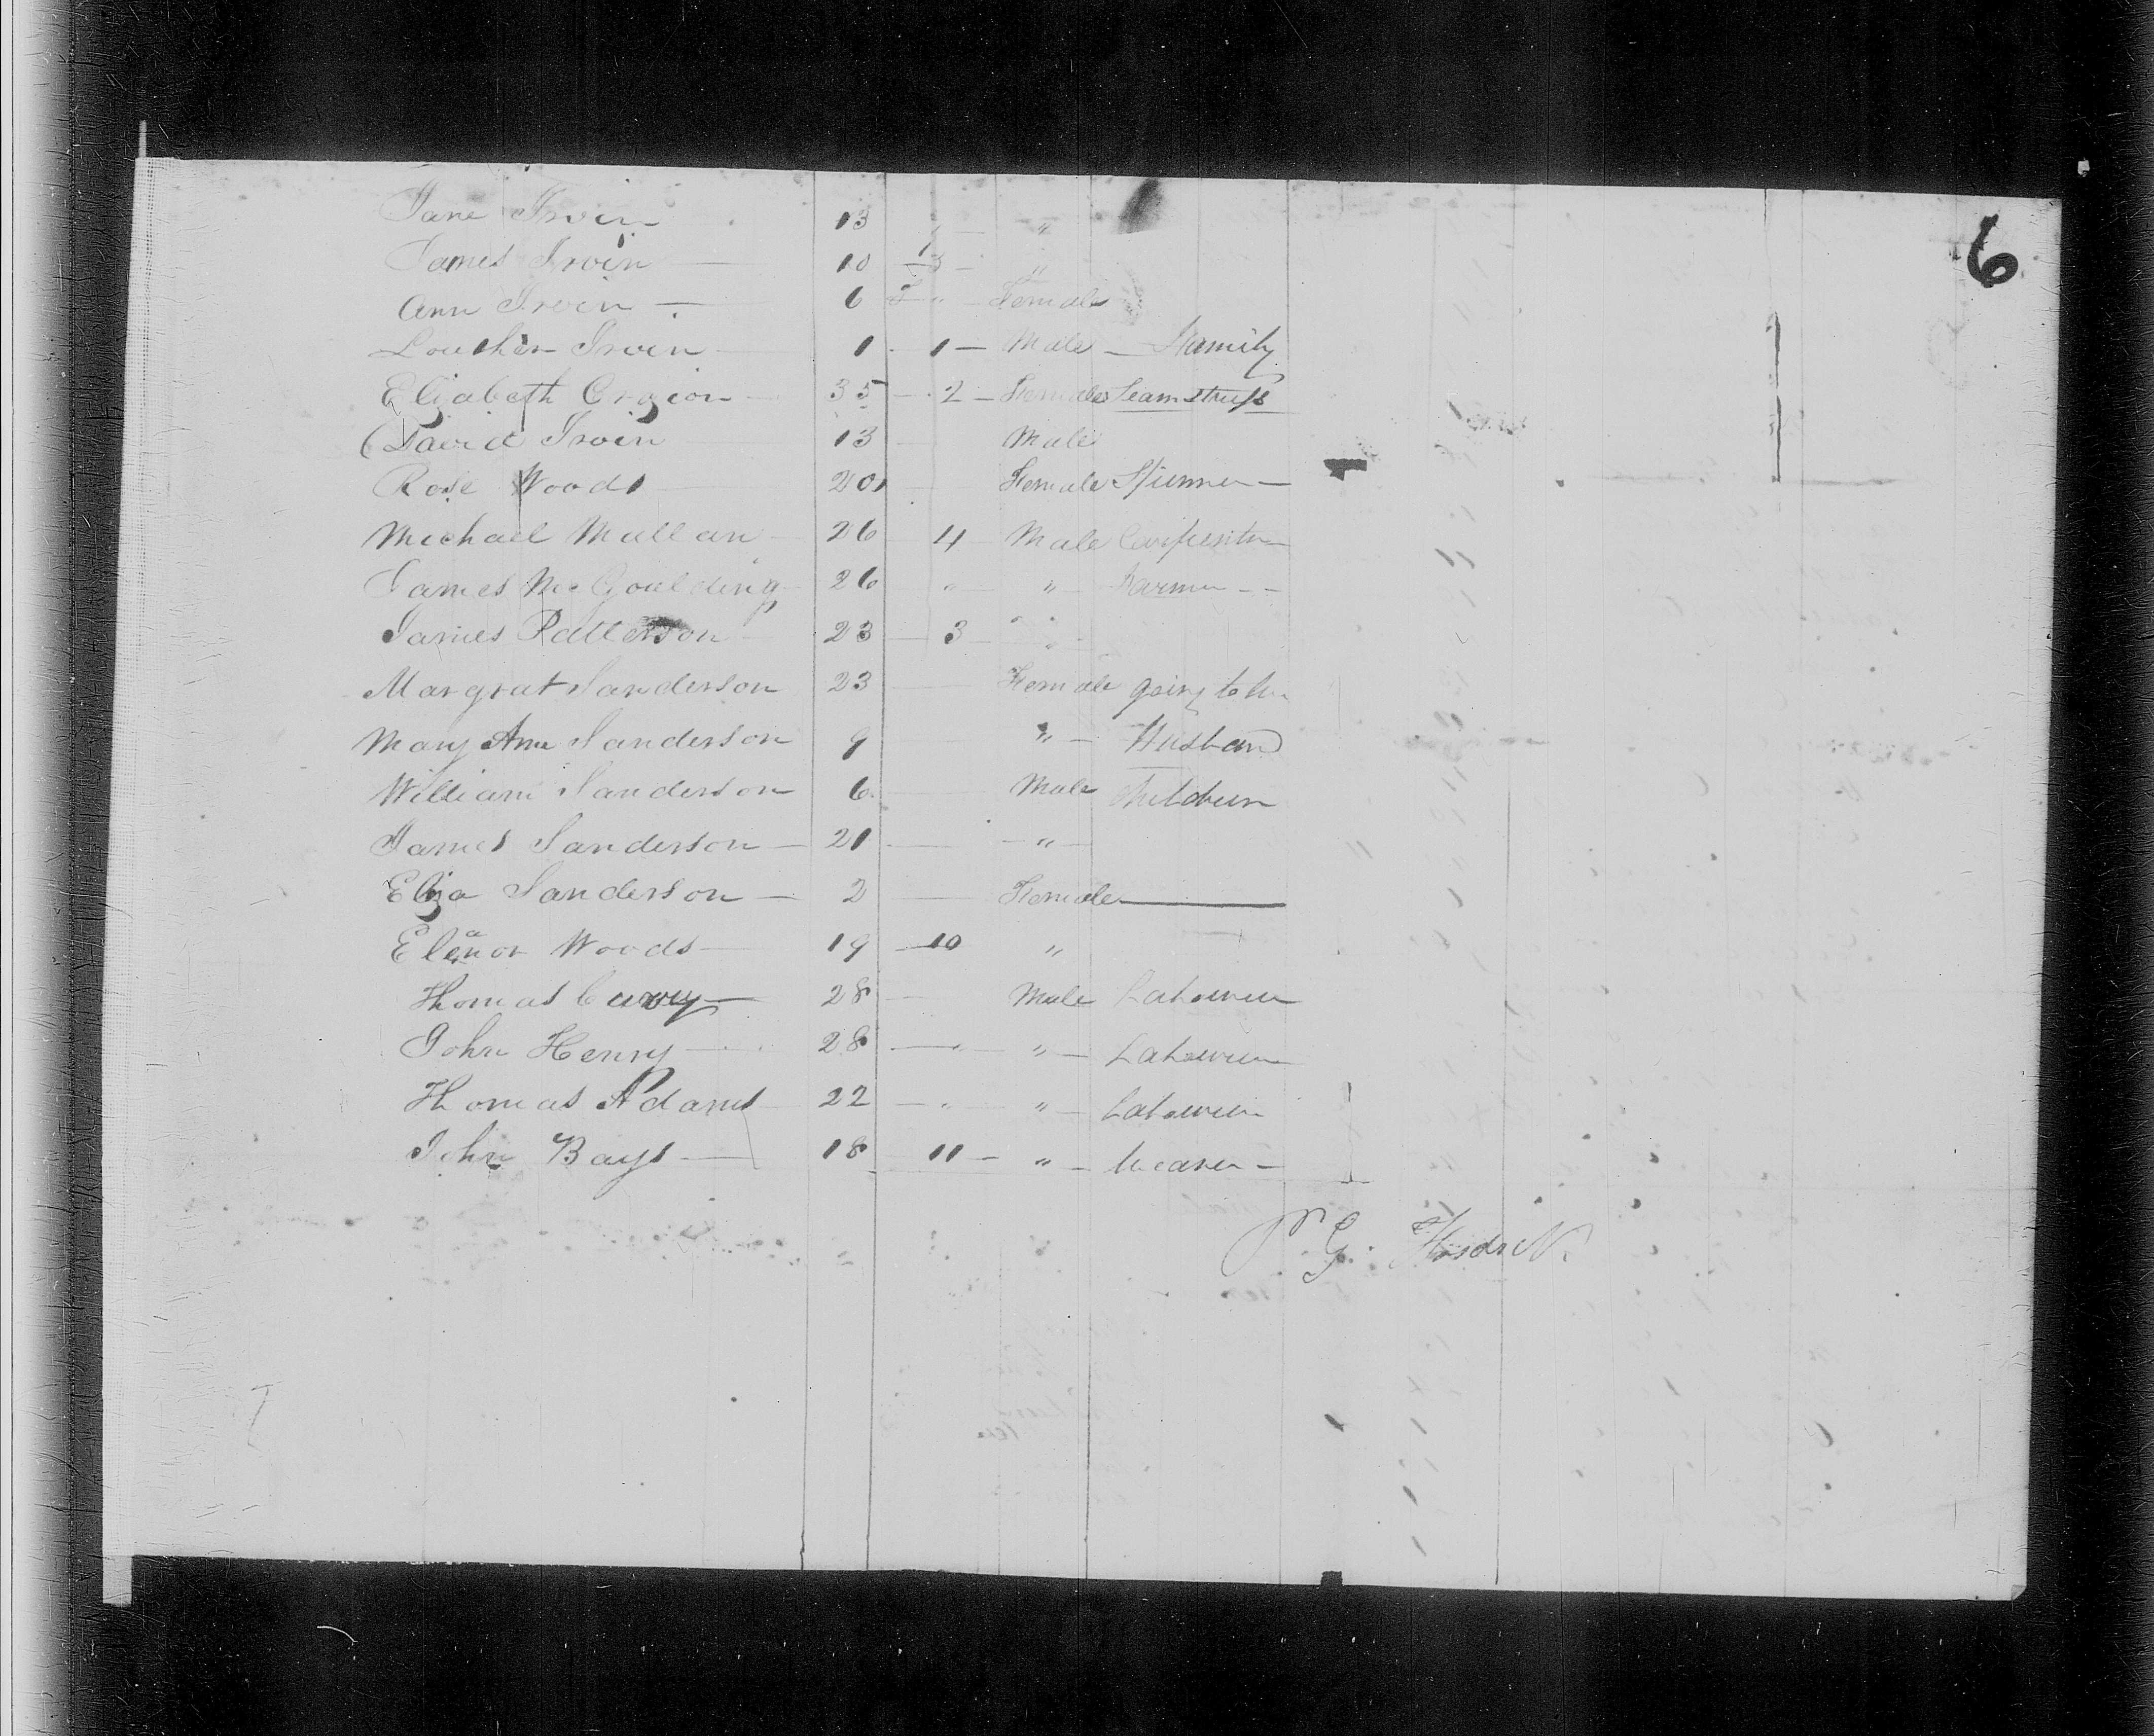 6
Jane Irvin 13 " "
James Irvin — 10 "
Ann Irvin — 6 " — Female
Louther Irvin 1 - 1 — Male — Family
Elizabeth — 35 — 2 — Female Seamstress
David Irvin 13 — Male
Rose Woods 20 — Female Spinner —
Michael Mullan — 26 — 4 Male Carpenter
James McGoulding 26 " " — Farmer - -
James Patterson 23 — 3 — " "
Margrat Sanderson 23 — Female going to her
Mary Ann Sanderson 9 " — Husband
William Sanderson 6 — Male Children
James Sanderson — 21 — — " —
Eliza Sanderson — 2 — Female —
Elenor Woods — 19 — 10 "
Thomas — 28 — Male Labourer
John Henry — 28 — " " — Labourer
Thomas Adams 22 — " — " — Labourer
John Bays — 18 11 — " — Weaver —
G.